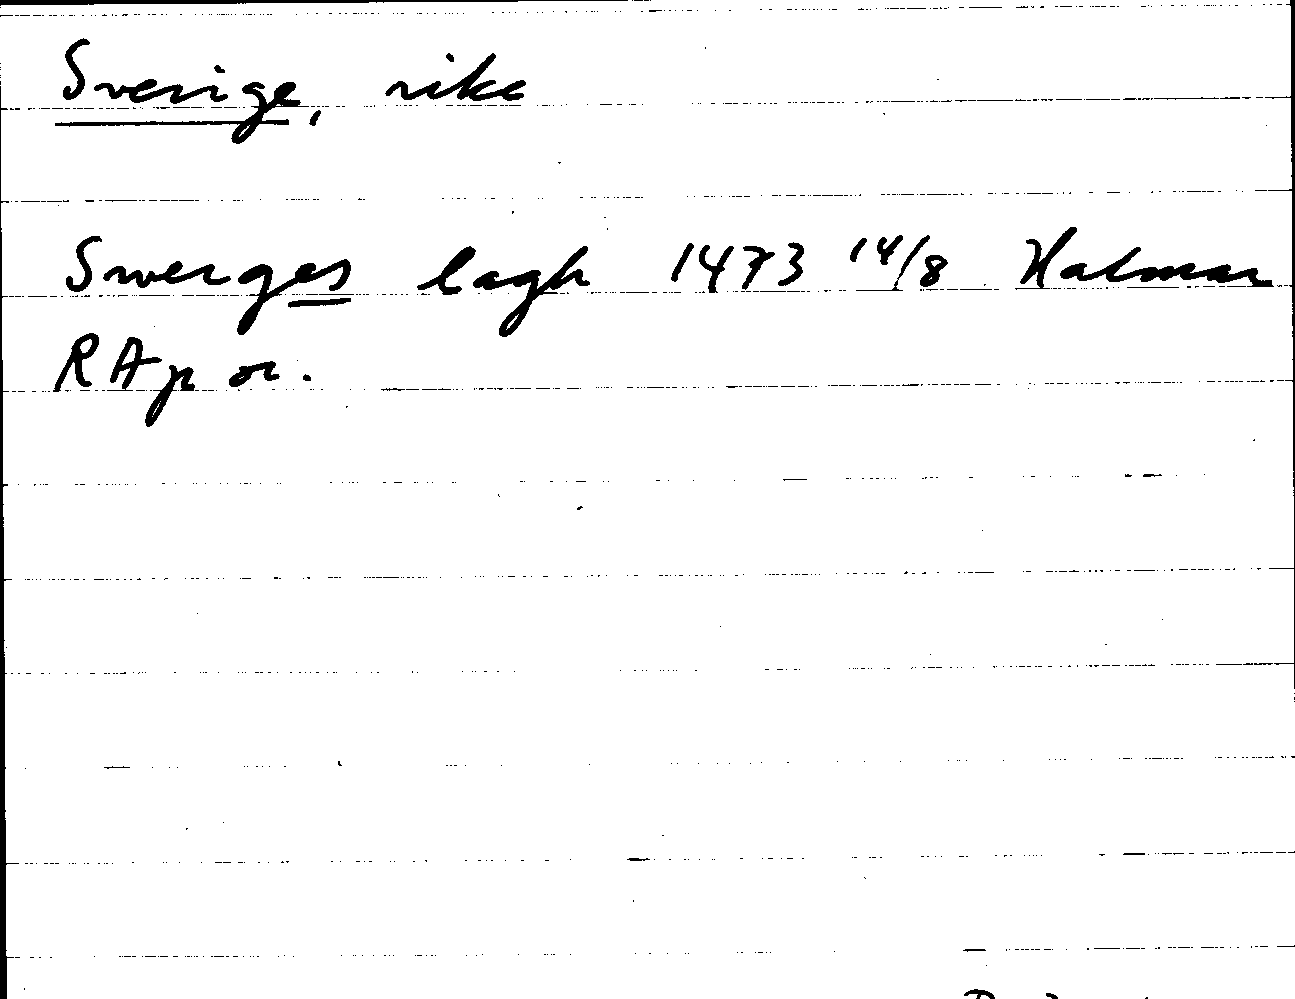 Sverige, rike
Swerges lagh 1473 14/8 Kalmar
RAp or.